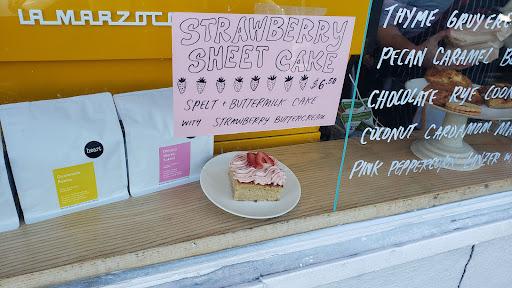 LA MARZOCCO
STRAWBERRY
SHEET CAKE
£6.50
SPELT + BUTTERMILK CAKE
WITH STRAWBERRY BUTTERCREAM
THYME GRUYERE
PECAN CARAMEL
CHOCOLATE RYE
COCONUT CARDAMOM
PINK PEPPERCORN LINZER